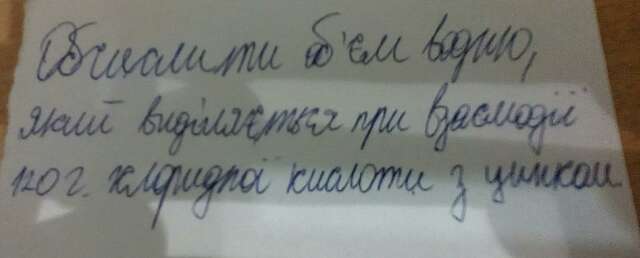 Обчислити об'єм водню,
який виділяється при взаємодії
120 г. хлоридної кислоти з цинком